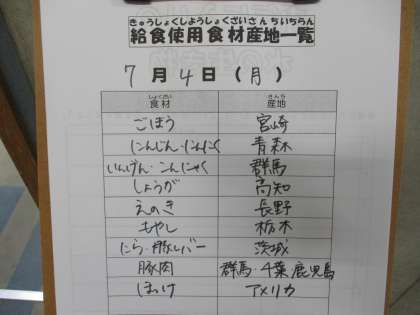 きゅうしょくしようしょくざいさんちいちらん
給食使用食材産地一覧
7月4日(月)
しょくざい さんち
食材 産地
ごぼう 宮崎
にんじん・にんにく 青森
いんげん・こんにゃく 群馬
しょうが 高知
えのき 長野
もやし 栃木
にら・豚レバー 茨城
豚肉 群馬・千葉・鹿児島
ほっけ アメリカ